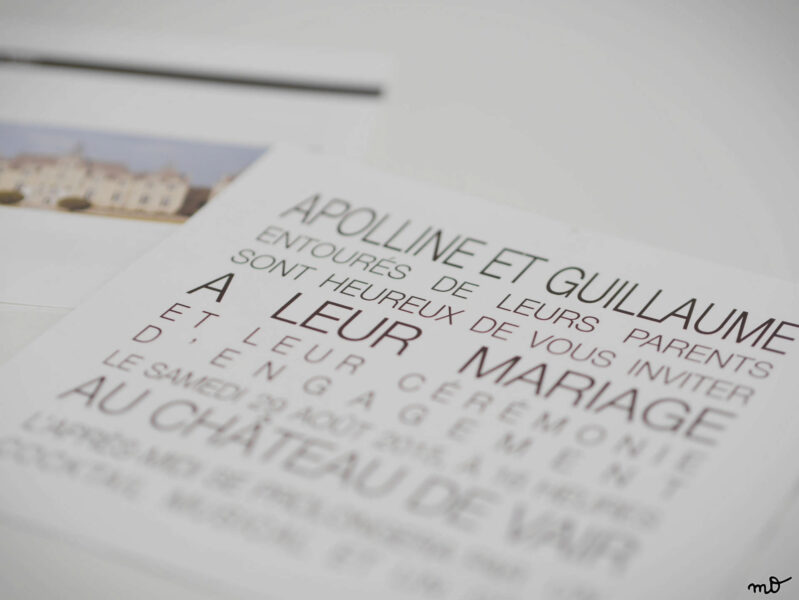 APOLLINE ET GUILLAUME
ENTOURÉS DE LEURS PARENTS
SONT HEUREUX DE VOUS INVITER
A LEUR MARIAGE
ET LEUR CÉRÉMONIE
D'ENGAGEMENT
LE SAMEDI 29 AOÛT 2015, À 16 HEURES
AU CHÂTEAU DE VAIR
L'APRÈS-MIDI SE PROLONGERA PAR UN
COCKTAIL MUSICAL ET UN